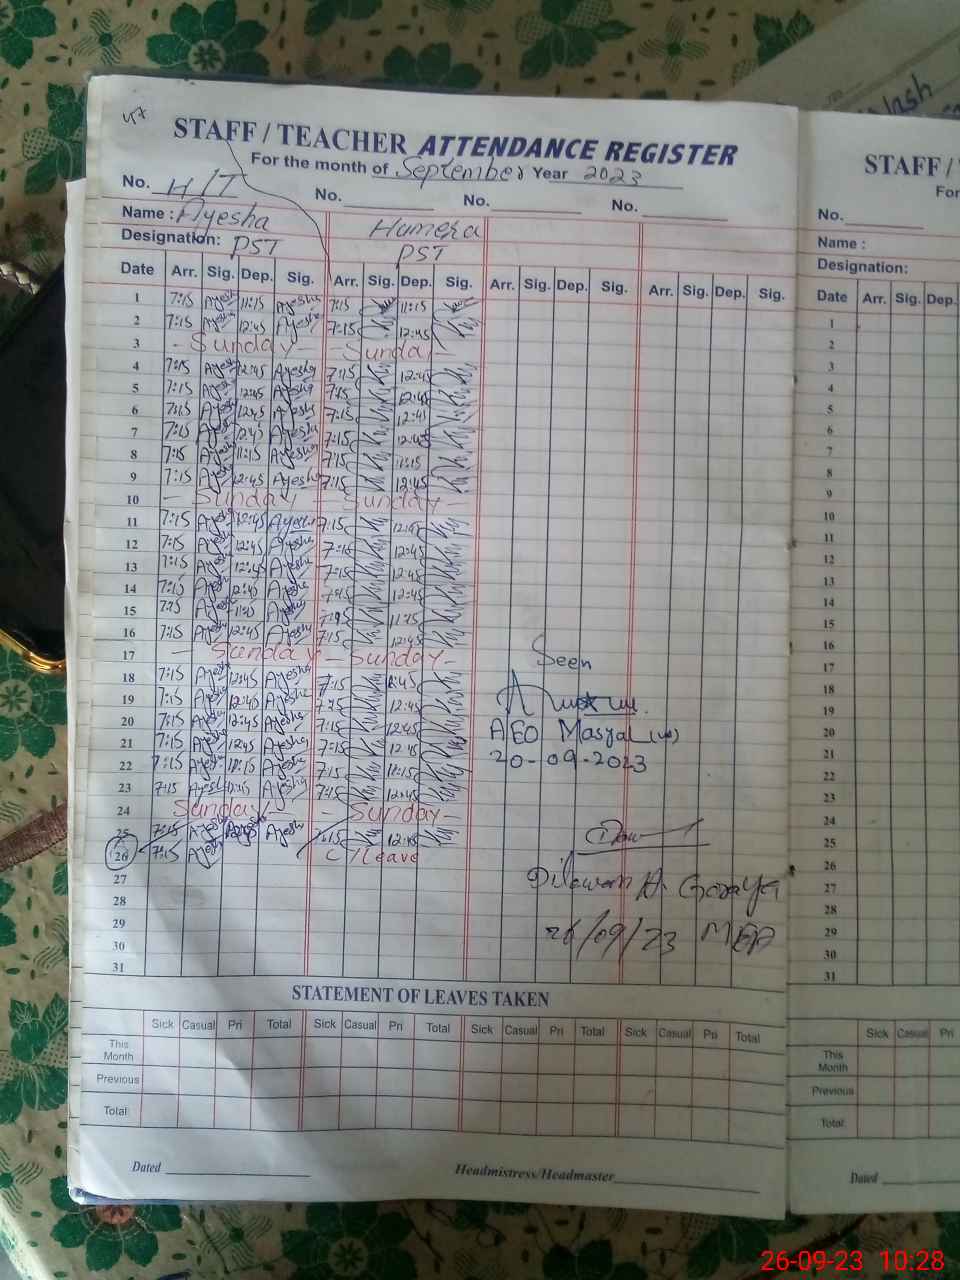 STAFF / TEACHER ATTENDANCE REGISTER
For the month of September Year 2023
No. H/T No. No. No.
Name : Ayesha Humera
Designation: PST PST
Date Arr. Sig. Dep. Sig. Arr. Sig. Dep. Sig. Arr. Sig. Dep. Sig. Arr. Sig. Dep. Sig.
1 7:15 Ayesha 11:15 Ayesha 7:15 11:15
2 7:15 Ayesha 12:45 Ayesha 7:15 12:45
3 - Sunday - - Sunday -
4 7:15 Ayesha 12:45 Ayesha 7:15 12:45
5 7:15 Ayesha 12:45 Ayesha 7:15 12:45
6 7:15 Ayesha 12:45 Ayesha 7:15 12:45
7 7:15 Ayesha 12:45 Ayesha 7:15 12:45
8 7:15 Ayesha 11:15 Ayesha 7:15 11:15
9 7:15 Ayesha 12:45 Ayesha 7:15 12:45
10 - Sunday - Sunday -
11 7:15 Ayesha 12:45 Ayesha 7:15 12:45
12 7:15 Ayesha 12:45 Ayesha 7:15 12:45
13 7:15 Ayesha 12:45 Ayesha 7:15 12:45
14 7:15 Ayesha 12:45 Ayesha 7:15 12:45
15 7:15 Ayesha 11:15 Ayesha 7:15 11:15
16 7:15 Ayesha 12:45 Ayesha 7:15 12:45
17 - Sunday - Sunday -
18 7:15 Ayesha 12:45 Ayesha 7:15 12:45
19 7:15 Ayesha 12:45 Ayesha 7:15 12:45
20 7:15 Ayesha 12:45 Ayesha 7:15 12:45
21 7:15 Ayesha 12:45 Ayesha 7:15 12:45
22 7:15 Ayesha 11:15 Ayesha 7:15 11:15
23 7:15 Ayesha 12:45 Ayesha 7:15 12:45
24 Sunday - Sunday -
25 7:15 Ayesha Ayesha 7:15 12:45
26 7:15 Ayesha C/leave
27
28
29
30
31
Seen
AEO Masyal (w)
20-09-2023
26/09/23 MEA
STATEMENT OF LEAVES TAKEN
Sick Casual Pri Total Sick Casual Pri Total Sick Casual Pri Total Sick Casual Pri Total
This Month
Previous
Total:
Dated Headmistress/Headmaster
STAFF /
For
No.
Name :
Designation:
Date Arr. Sig. Dep.
1
2
3
4
5
6
7
8
9
10
11
12
13
14
15
16
17
18
19
20
21
22
23
24
25
26
27
28
29
30
31
Sick Casual Pri
This Month
Previous
Total:
Dated
26-09-23 10:28